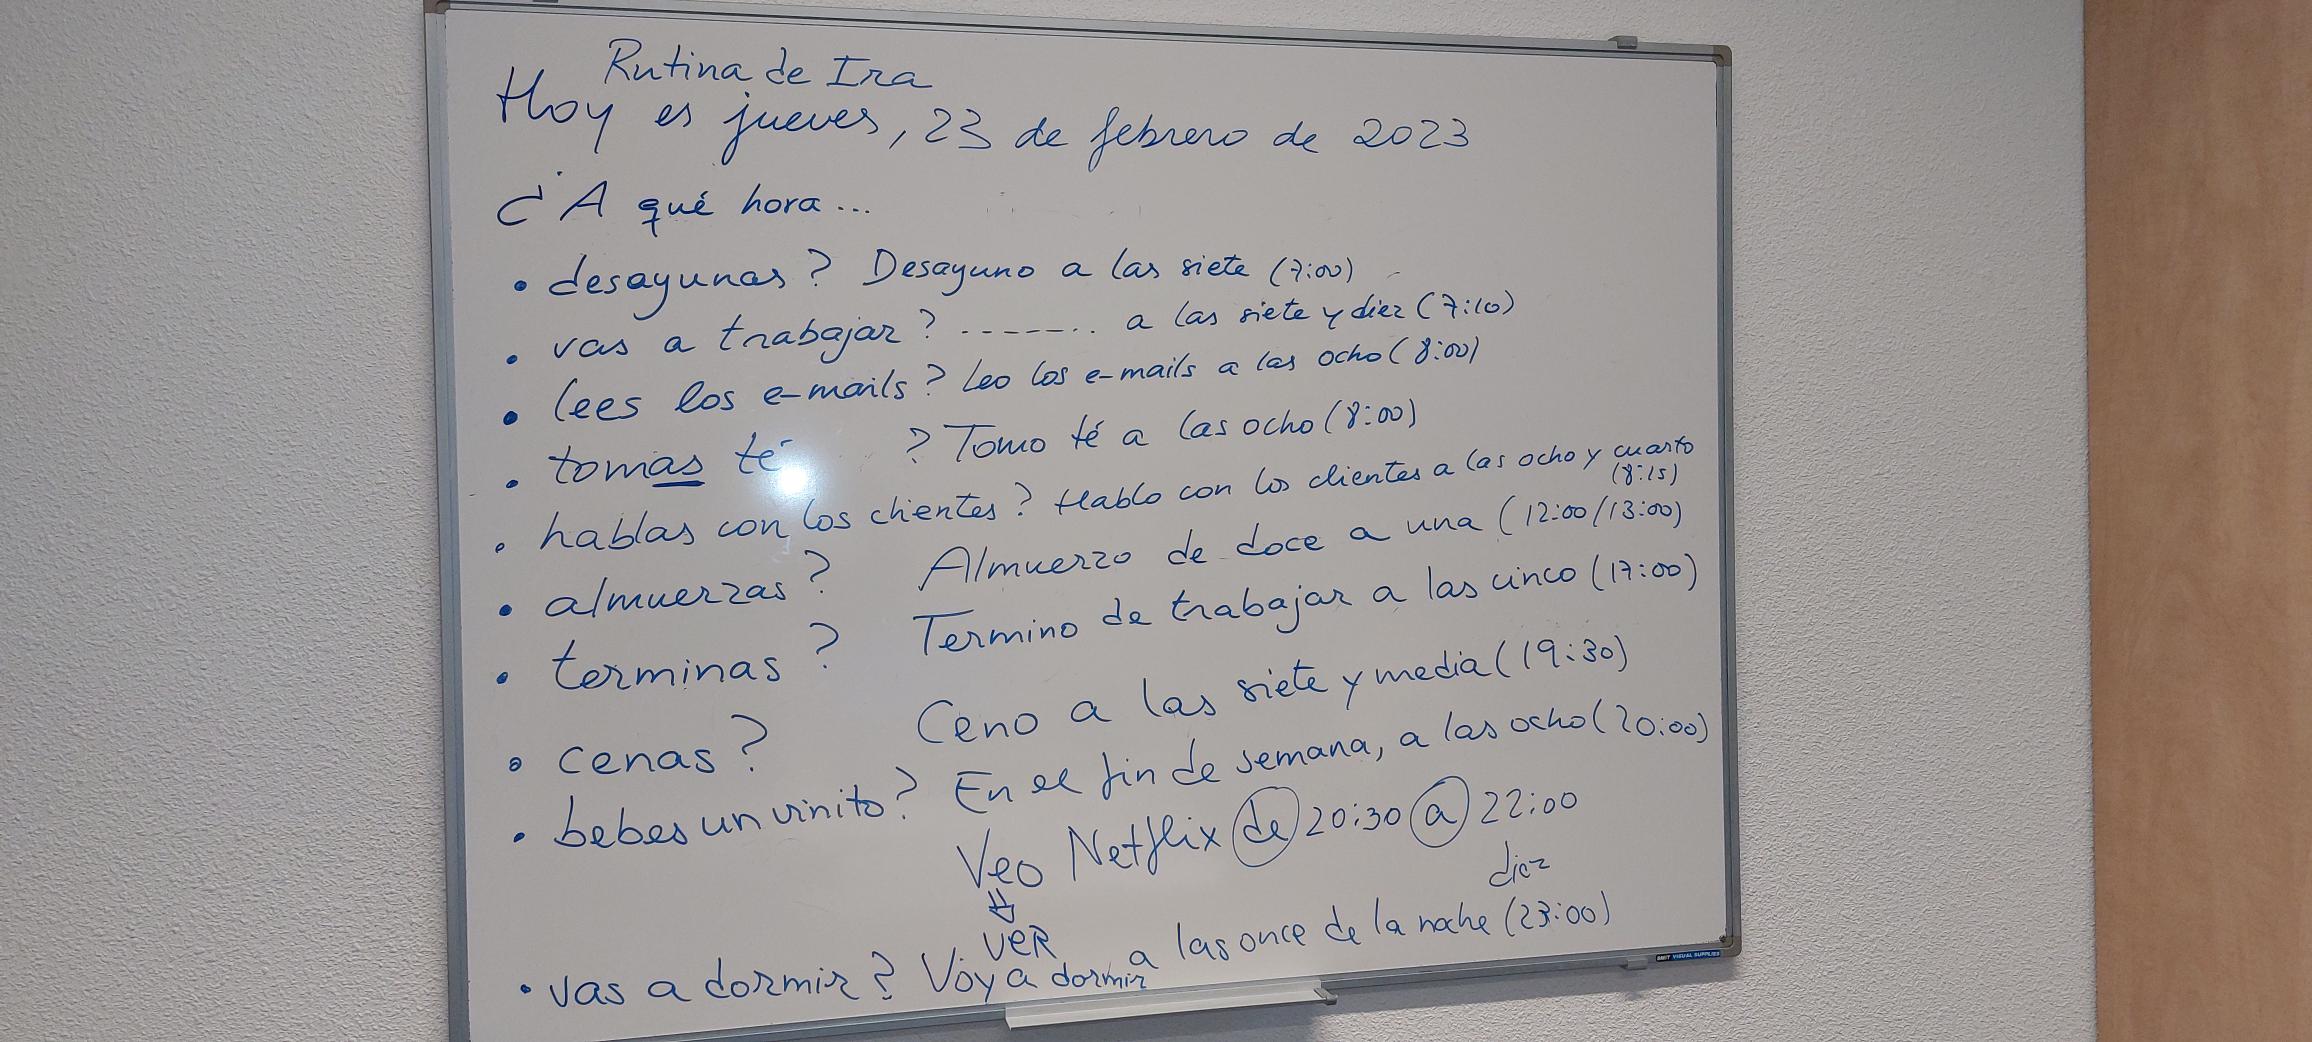 Rutina de Ira
Hoy es jueves, 23 de febrero de 2023
¿A qué hora...
• desayunas? Desayuno a las siete (7:00)
• vas a trabajar? ........ a las siete y diez (7:10)
• lees los e-mails? Leo los e-mails a las ocho (8:00)
• tomas té ? Tomo té a las ocho (8:00)
• hablas con los clientes? Hablo con los clientes a las ocho y cuarto
(8:15)
• almuerzas? Almuerzo de doce a una (12:00/13:00)
• terminas? Termino de trabajar a las cinco (17:00)
• cenas? Ceno a las siete y media (19:30)
• bebes un vinito? En el fin de semana, a las ocho (20:00)
Veo Netflix de 20:30 a 22:00
diez
VER
• vas a dormir? Voy a dormir a las once de la noche (23:00)
SMIT VISUAL SUPPLIES